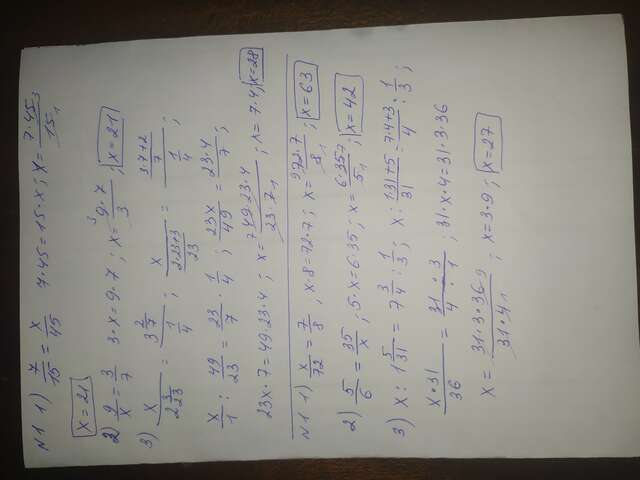 N1 1) 7/15 = x/45 7·45=15·x; x= 7·45³/15₁
x=21
2) 9/x = 3/7 3·x=9·7; x= ³9·7/3; x=21
3) x/(2 3/23) = (3 2/7)/(1/4); x/((2·23+3)/23) = ((3·7+2)/7)/(1/4);
x/1 : 49/23 = 23/7 : 1/4; 23x/49 = 23·4/7;
23x·7=49·23·4; x= ⁷49·23·4/23·7₁; x=7·4; x=28
N1 1) x/72 = 7/8; x·8=72·7; x= ⁹72·7/8₁; x=63
2) 5/6 = 35/x; 5·x=6·35; x= 6·35⁷/5₁; x=42
3) x : 1 5/31 = 7 3/4 : 1/3; x : (1·31+5)/31 = (7·4+3)/4 : 1/3;
x·31/36 = 31/4 · 3/1; 31·x·4=31·3·36
x= 31·3·36⁹/31·4₁; x=3·9; x=27.